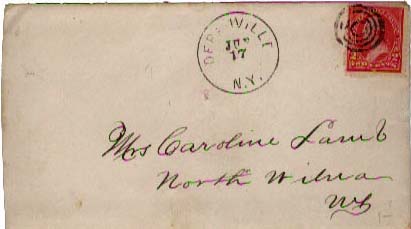 DEFERIVILLE
JUN
17
N.Y.
Mrs Caroline Lamb
North Wilna
NY